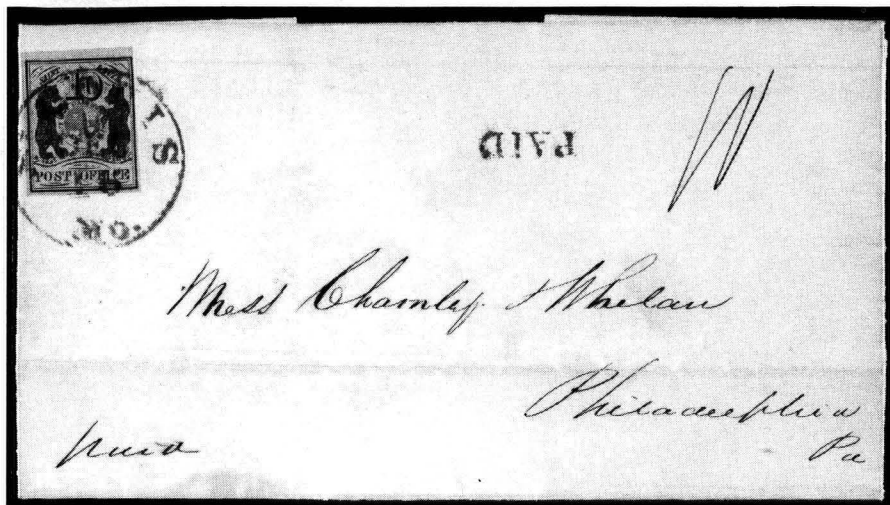 5
POST OFFICE
IS
MO.
PAID
Mess Charnley & Whelan
Philadelphia
Pa
paid